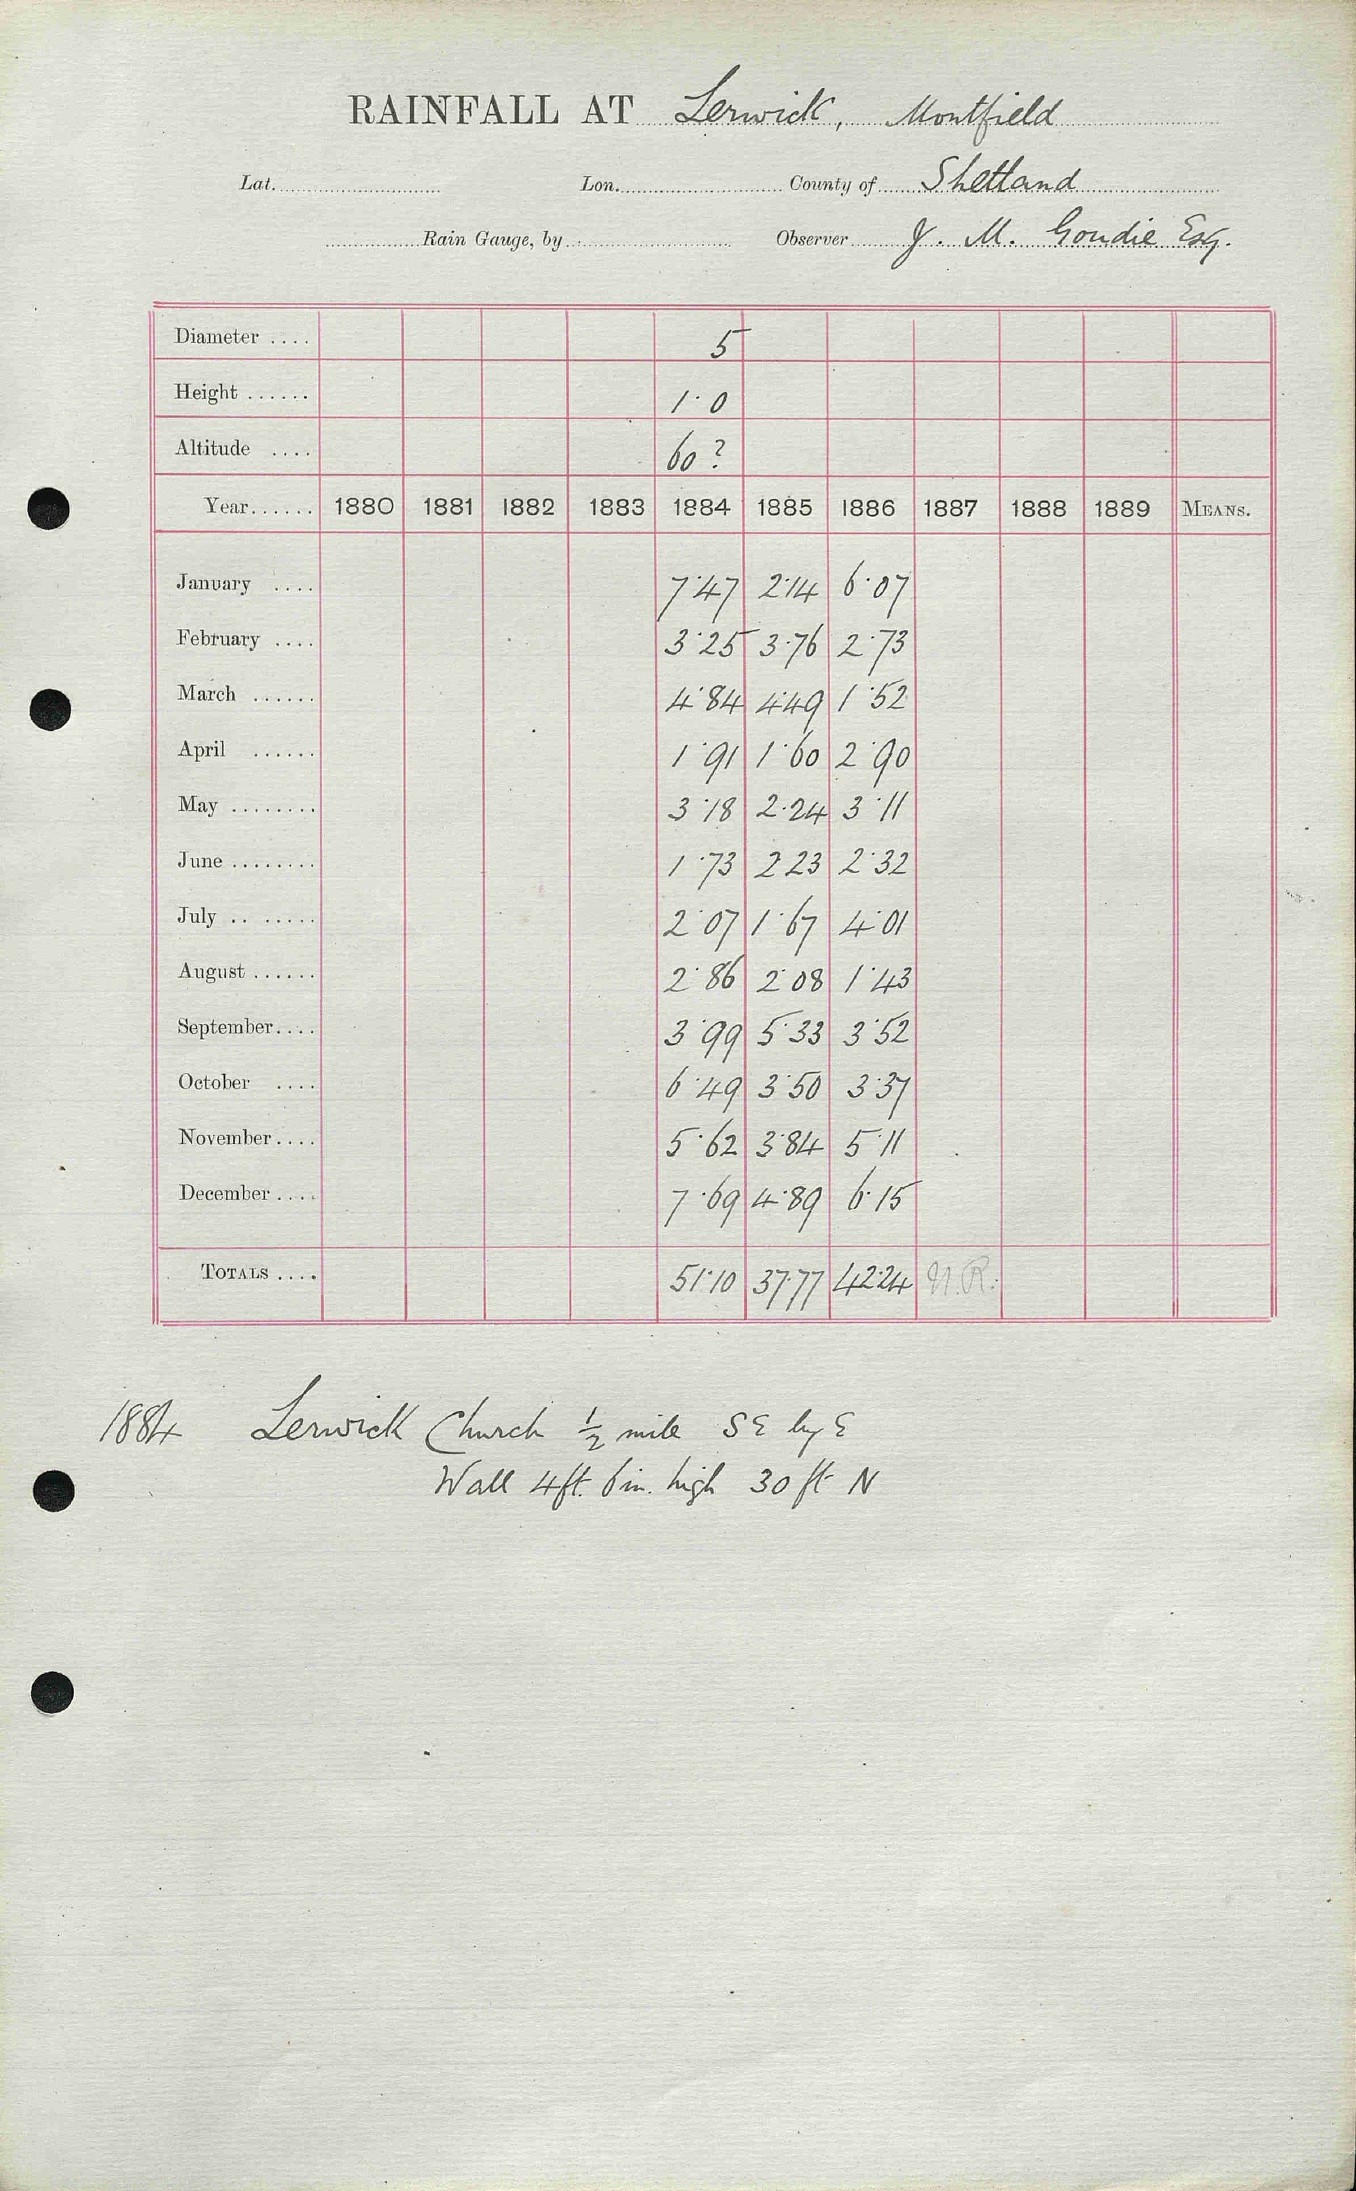 RAINFALL AT Lerwick, Montfield
Lat. Lon. County of Shetland
Rain Gauge, by Observer J. M. Goudie Esq.
Diameter .... 5
Height ...... 1.0
Altitude .... 60 ?
Year...... 1880 1881 1882 1883 1884 1885 1886 1887 1888 1889 MEANS.
January .... 7.47 2.14 6.07
February .... 3.25 3.76 2.73
March ...... 4.84 4.49 1.52
April ...... 1.91 1.60 2.90
May ........ 3.18 2.24 3.11
June ........ 1.73 2.23 2.32
July .. ..... 2.07 1.67 4.01
August ...... 2.86 2.08 1.43
September.... 3.99 5.33 3.52
October .... 6.49 3.50 3.37
November.... 5.62 3.84 5.11
December.... 7.69 4.89 6.15
TOTALS .... 51.10 37.77 42.24 N.R.
1884 Lerwick Church ½ mile SE by E
Wall 4ft. 6in. high 30 ft N